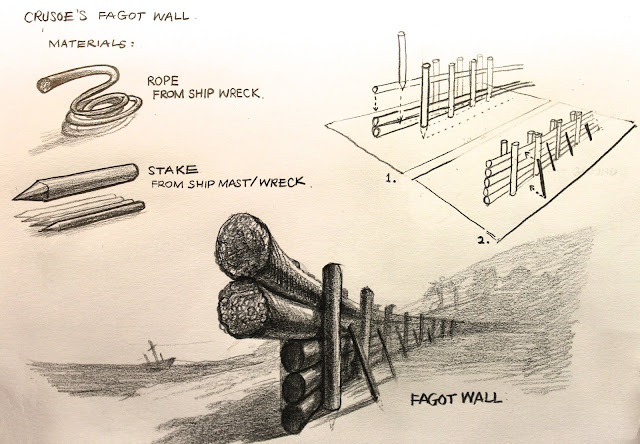 CRUSOE'S FAGOT WALL.
MATERIALS:
ROPE
FROM SHIP WRECK.
STAKE
FROM SHIP MAST/WRECK.
1.
2.
FAGOT WALL